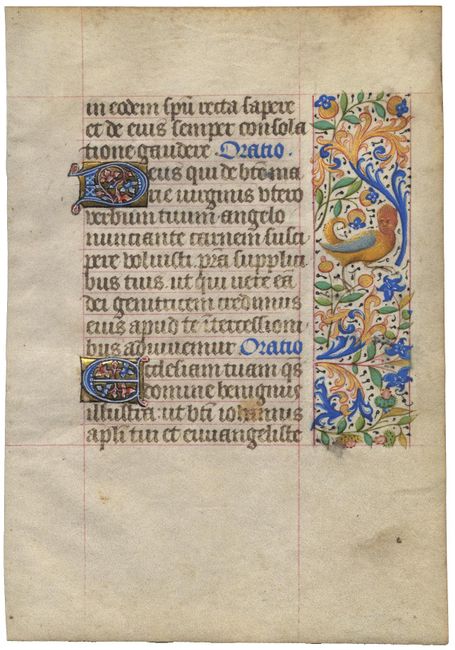 in eodem spu recta sapere
et de eius semper consola
tione gaudere Oratio.
Deus qui de bte ma
rie virginis utero
verbum tuum angelo
nunciante carnem susci
pere voluisti. pra supplici
bus tuis. ut qui vere ea
dei genitricem credimus
eius apud te intercessioni
bus adiuvemur Oratio
Ecclesiam tuam qs
domine benignus
illustra. ut bti iohannis
apli tui et euuangeliste